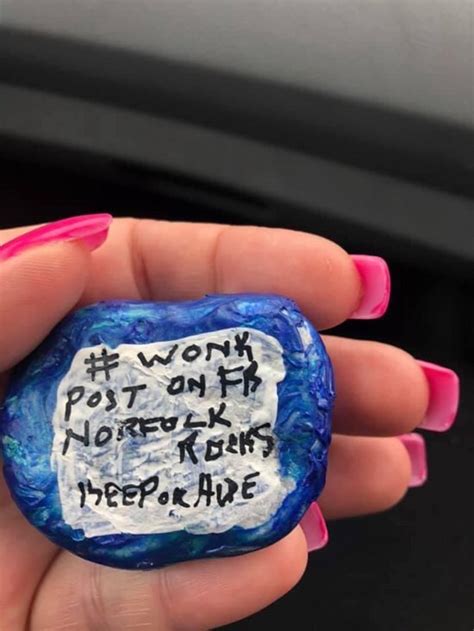 # WONK
POST ON FB
NORFOLK
ROCKS
KEEP OR HIDE